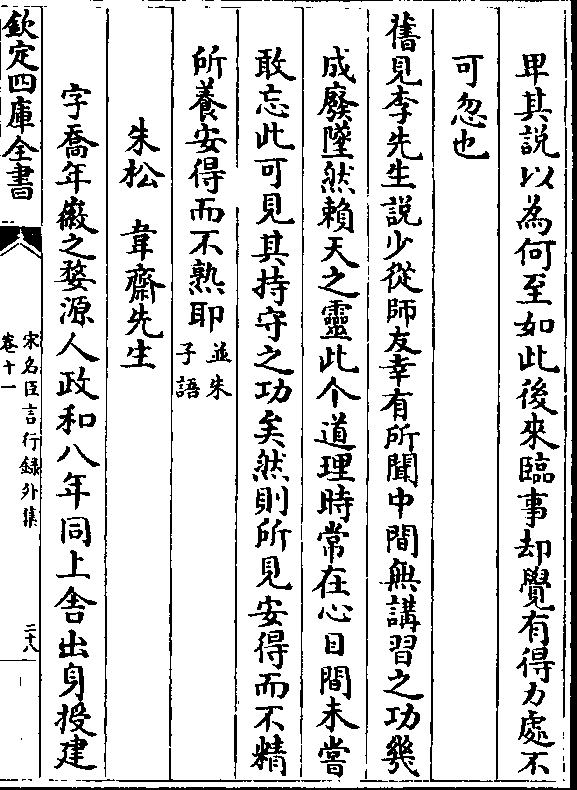 卑其説以為何至如此後來臨事却覺有得力處不
可忽也
舊見李先生説少從師友幸有所聞中間無講習之功幾
成廢墜然賴天之靈此个道理時常在心目間未嘗
敢忘此可見其持守之功矣然則所見安得而不精
所養安得而不熟耶並朱子語
朱松 韋齋先生
字喬年徽之婺源人政和八年同上舎出身授建
欽定四庫全書
宋名臣言行録外集
卷十一
二十八